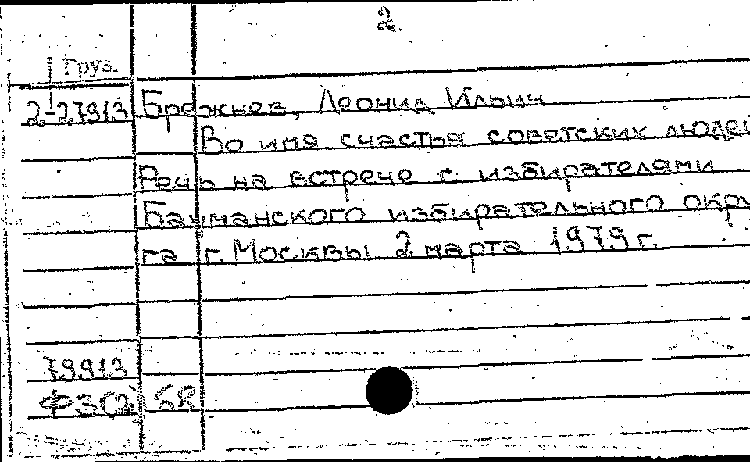 2.
Груз.
2-27913 Брежнев, Леонид Ильич
Во имя счастья советских людей
Речь на встрече с избирателями
Бауманского избирательного окру
га г. Москвы 2 марта 1979 г.
79913